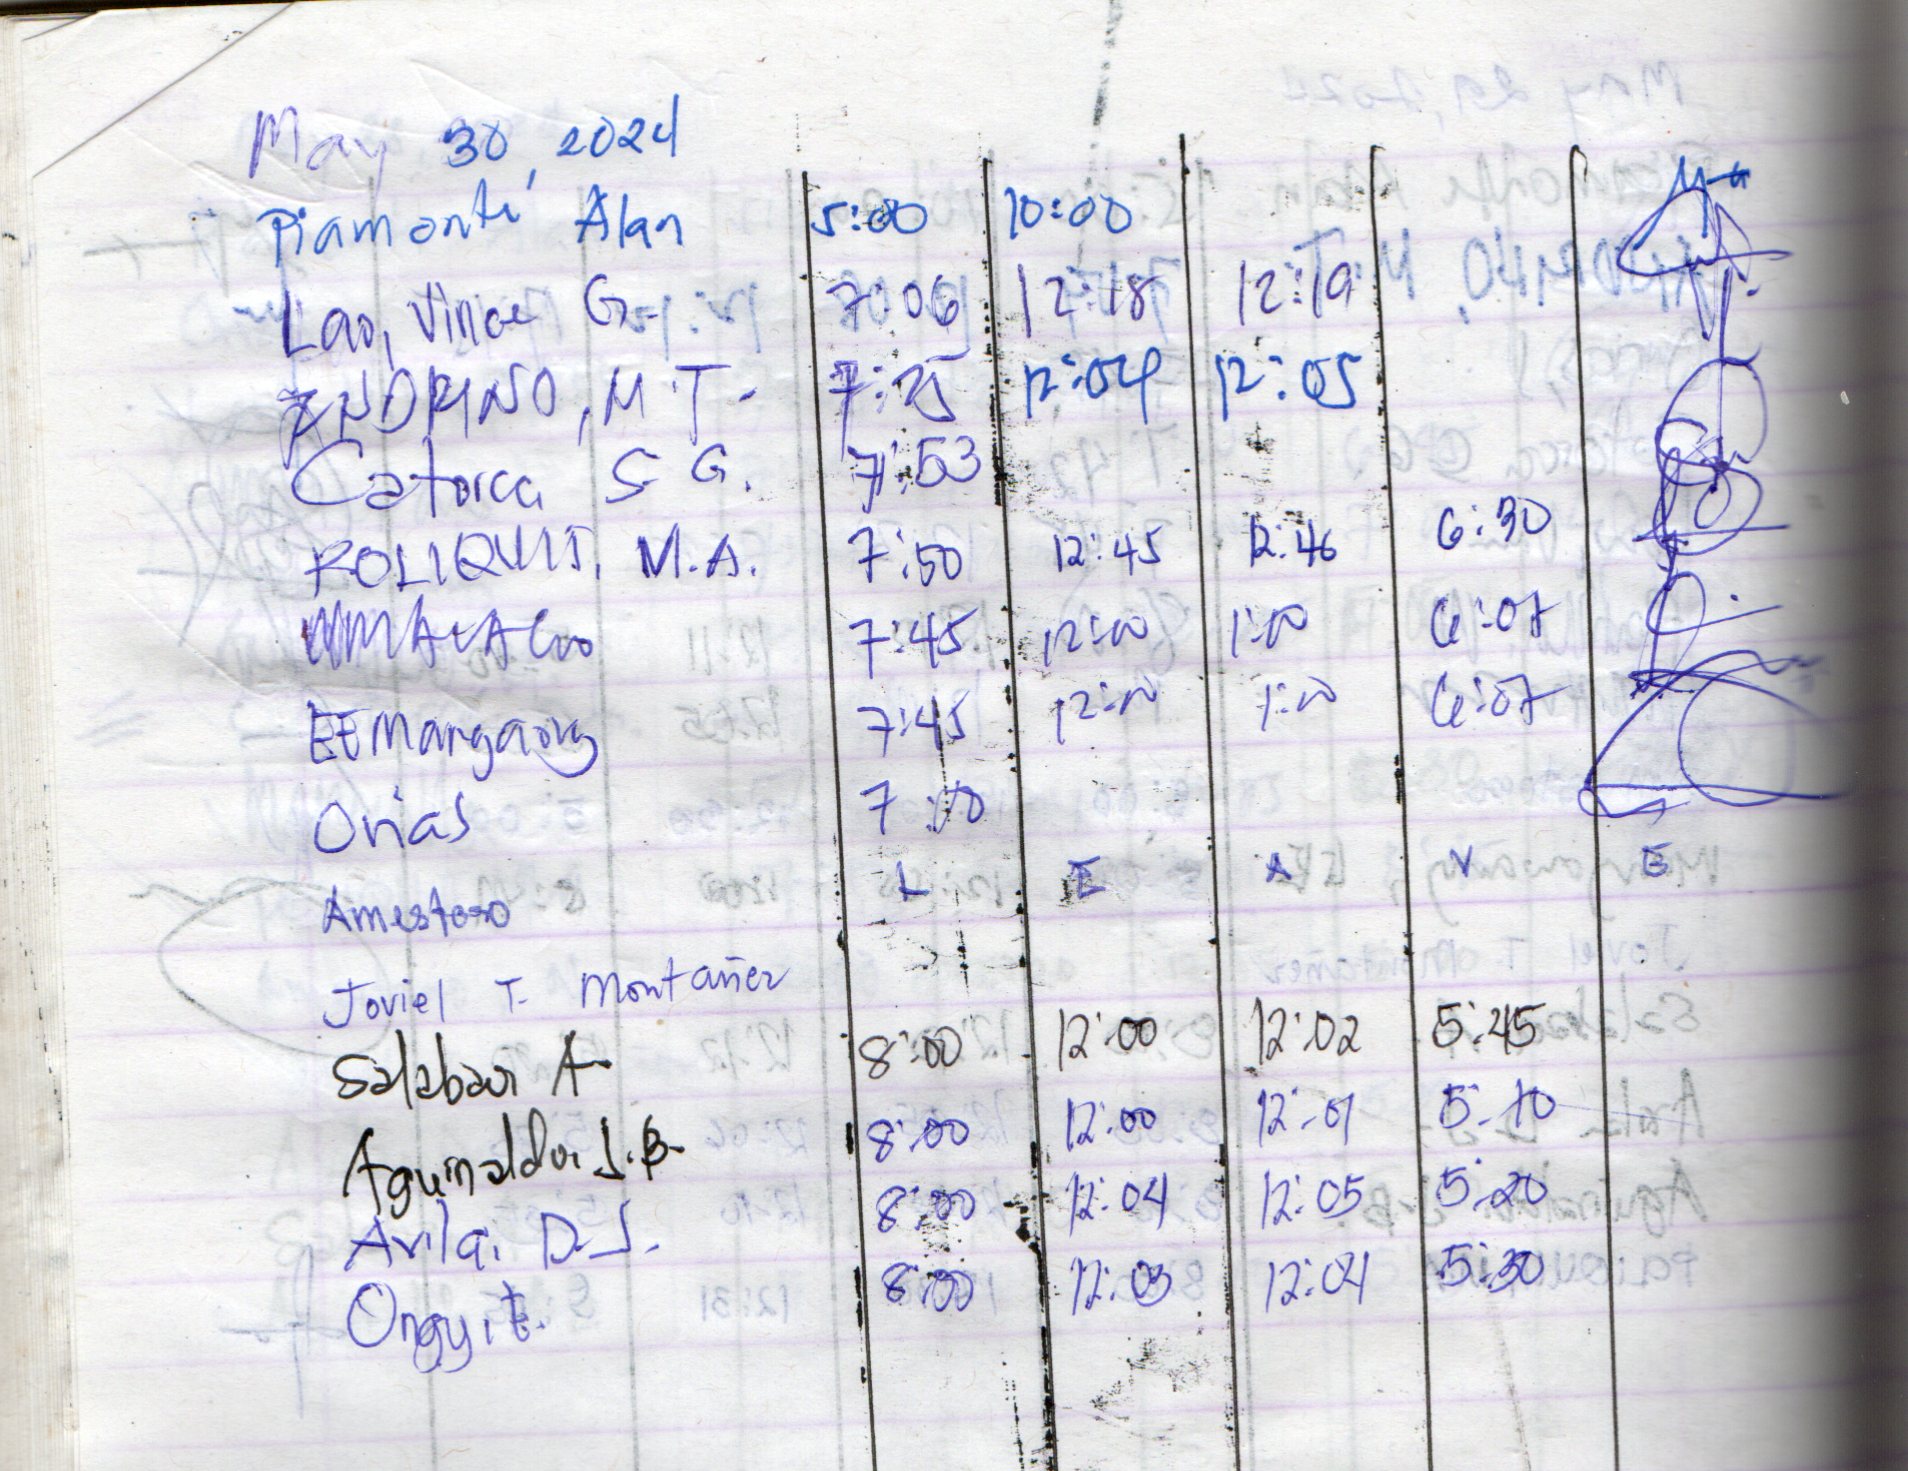 May 30, 2024
Piamonte Alan 5:00 10:00
Lao, Vince G. 7:06 12:18 12:19
ENDRINO, M.T. 7:25 12:04 12:05
Catorca S G. 7:53
ROLIQUIT, M.A. 7:50 12:45 12:46 6:30
7:45 12:00 1:00 6:07
EE Margaorg 7:45 12:00 1:00 6:07
Orias 7:10
Amestoso L E A V E
Joviel T. Montañer
Salabao A 8:00 12:00 12:02 5:45
Aguinaldo, J.B. 8:00 12:00 12:01 5:10
Avila, D.J. 8:00 12:04 12:05 5:20
Ongy, t. 8:00 12:03 12:04 5:30